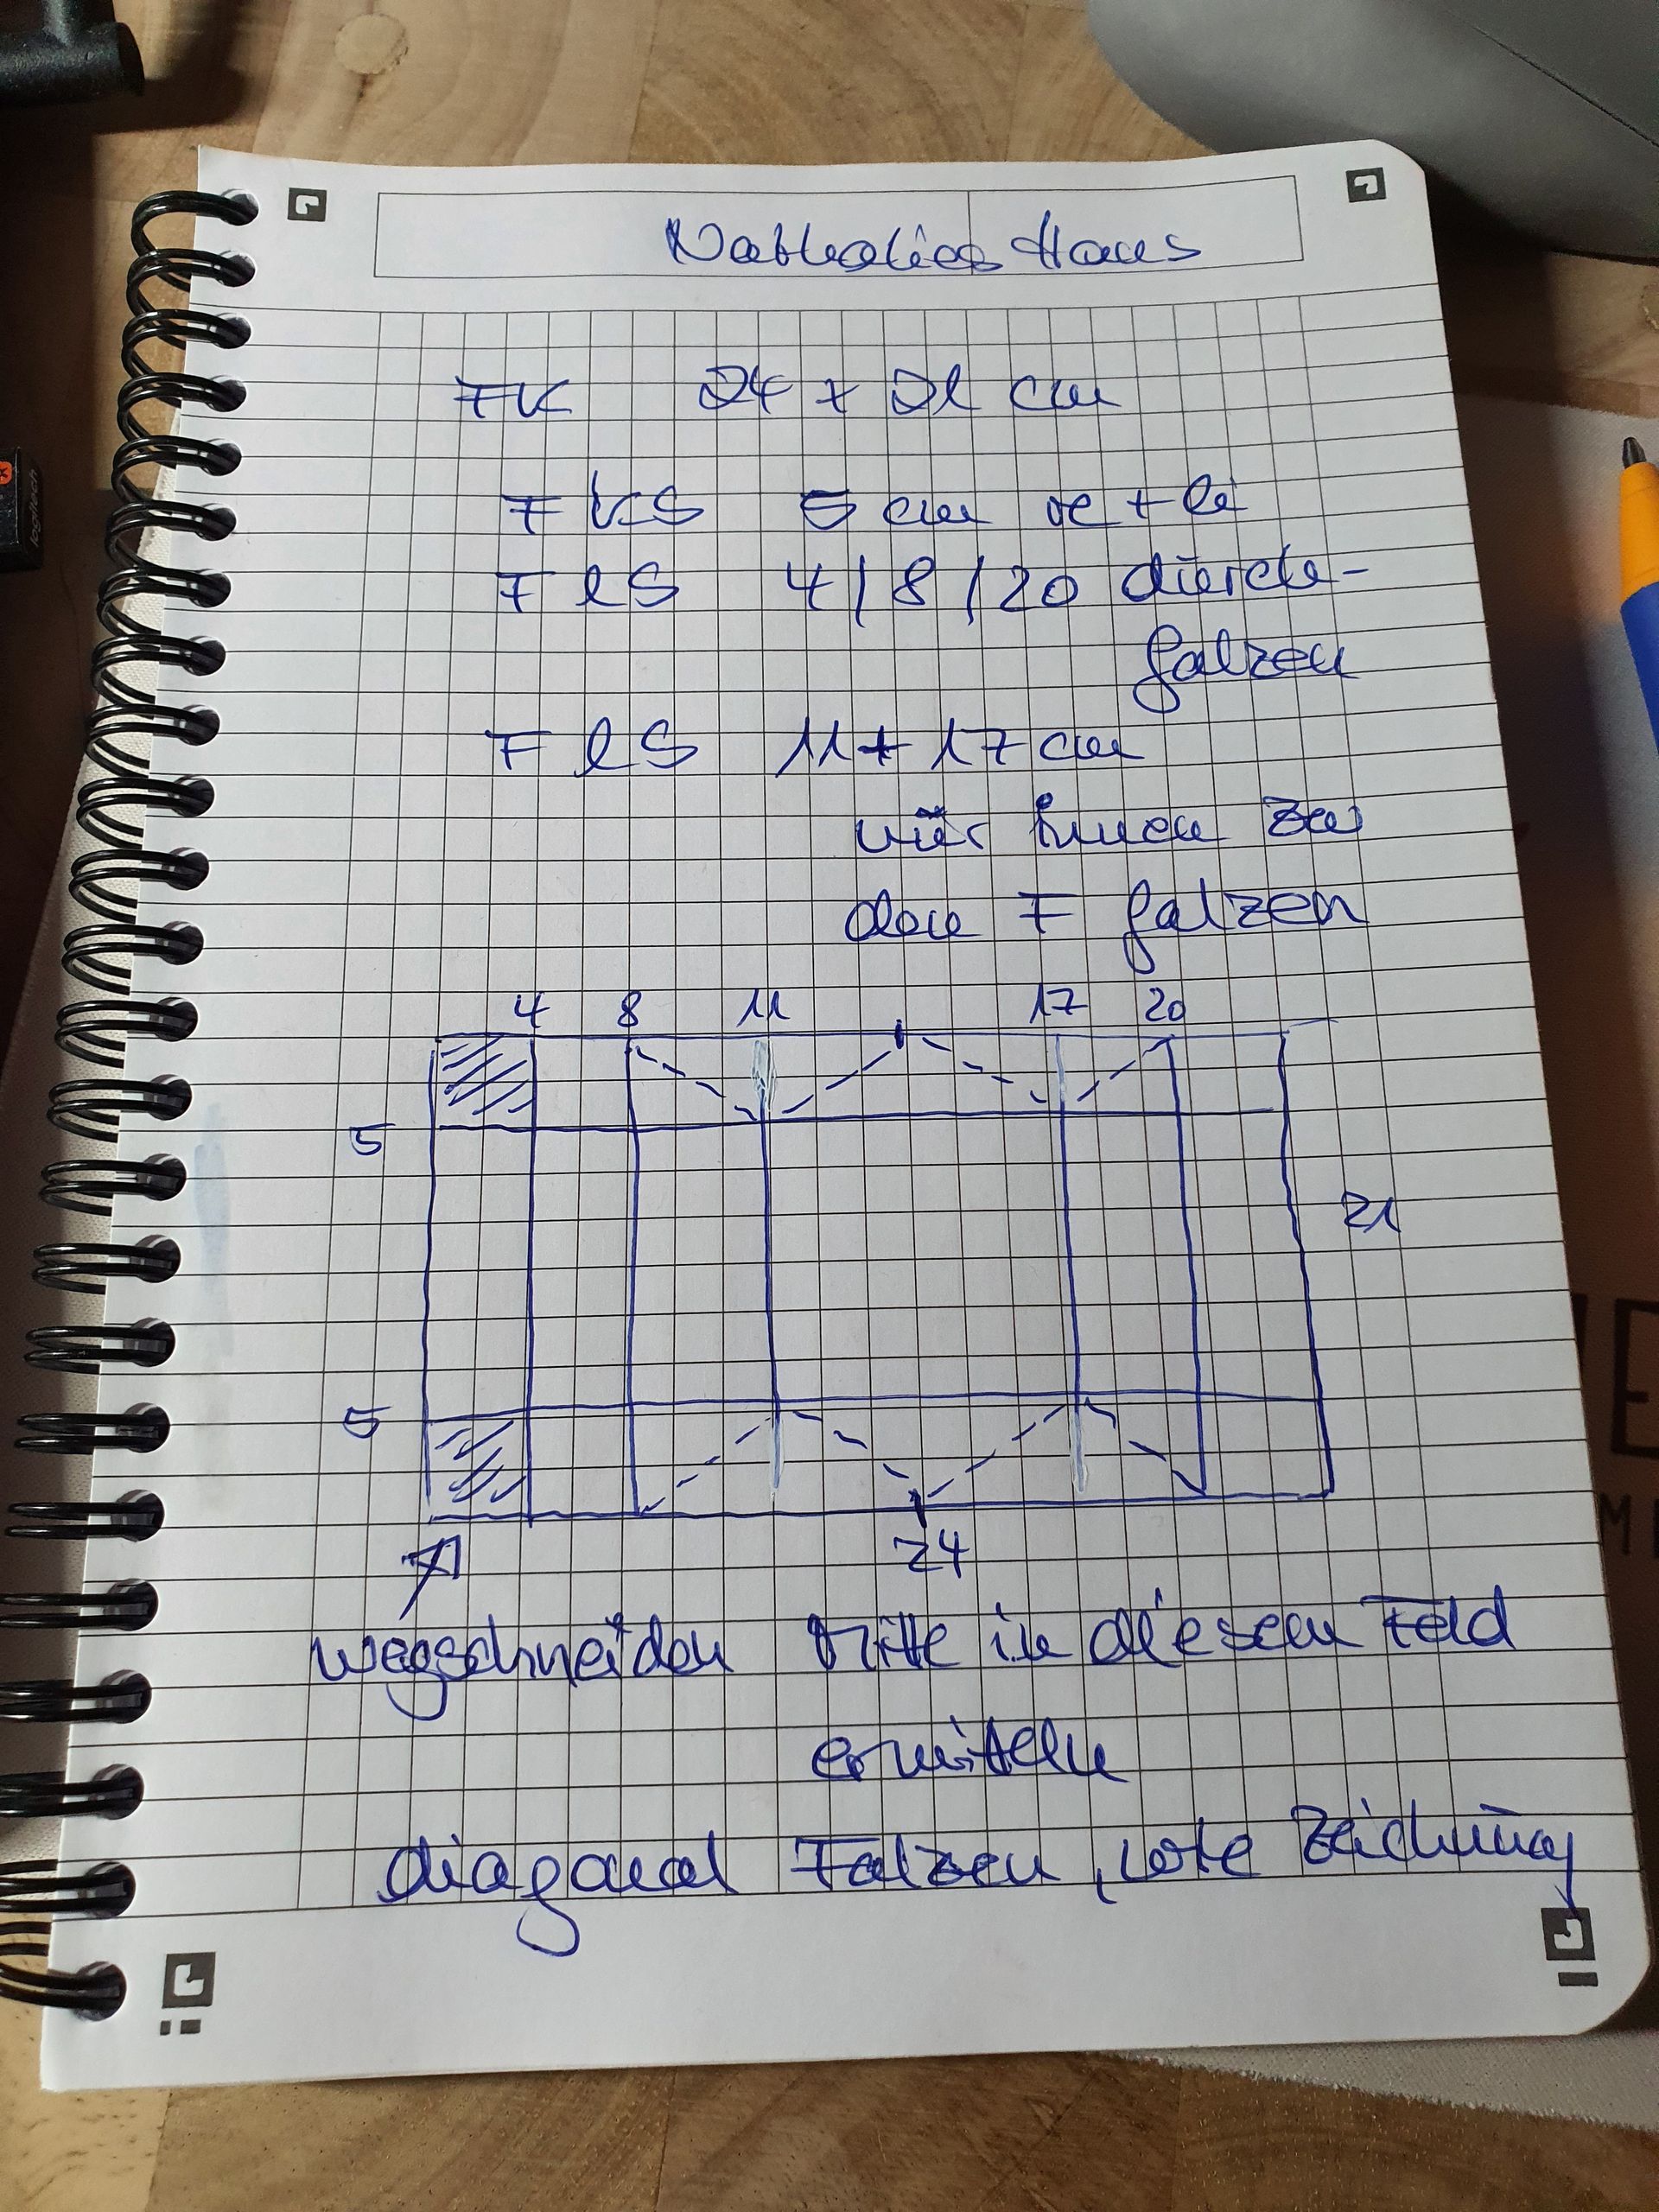 Nathalies Haus
FK 24 x 21 cm
F kS 5 cm re + li
F lS 4/8/20 durch-
falzen
F lS 11 + 17 cm
nur innen zu
den F falzen
4 8 11 17 20
5
21
5
24
wegschneiden Mitte in diesem Feld
ermitteln
diagonal Falzen, lote Zeichnung
logitech